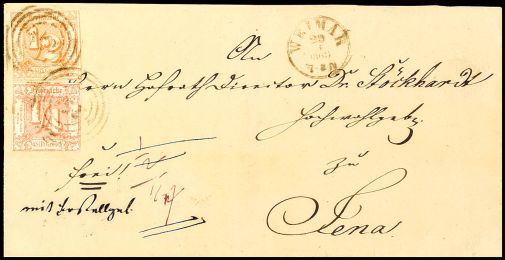 WEIMAR
An
Herrn Hofrath Director Dr. Stöckhardt
Hochwohlgeb.
zu
Jena.
frei!
mit Bestellgel.